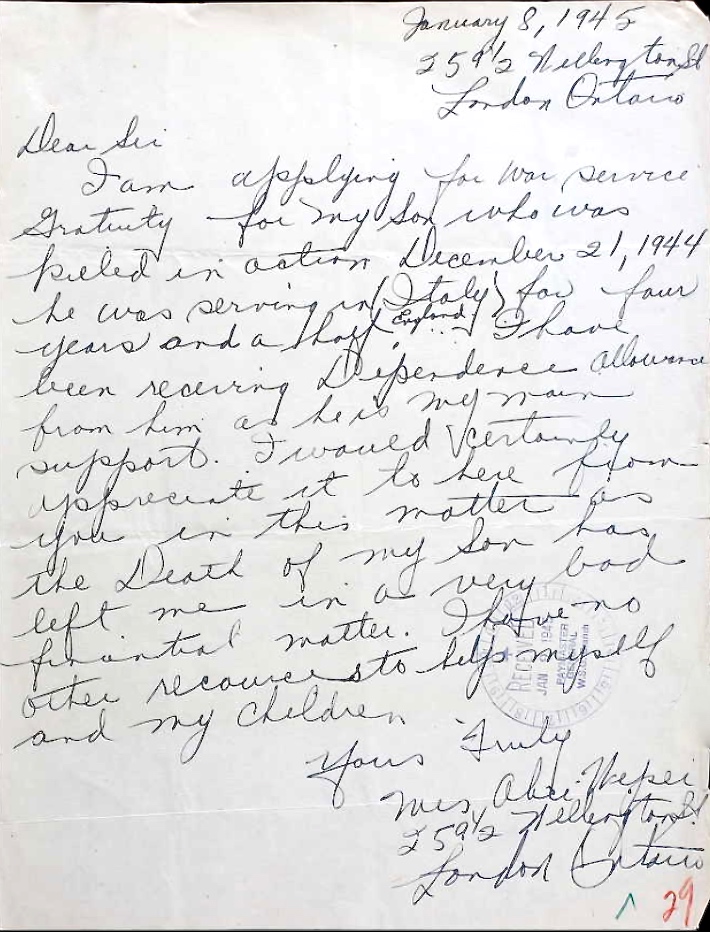 January 8, 1945
259½ Wellington St
London Ontario
Dear Sir
I am applying for war service
Gratuity for my Son who was
killed in action December 21, 1944
he was serving in (Italy) for four
England
years and a half I have
been receiving Dependence allowance
from him as he is my main
support. I would certainly
appreciate it to here from
you in this matter as
the Death of my Son has
left me in a very bad
financial matter. I have no
other recources to help myself
and my children
RECEIVED
JAN 9 1945
PAYMASTER
GENERAL
Yours Truly
Mrs,
259½ Wellington St.
London Ontario
29